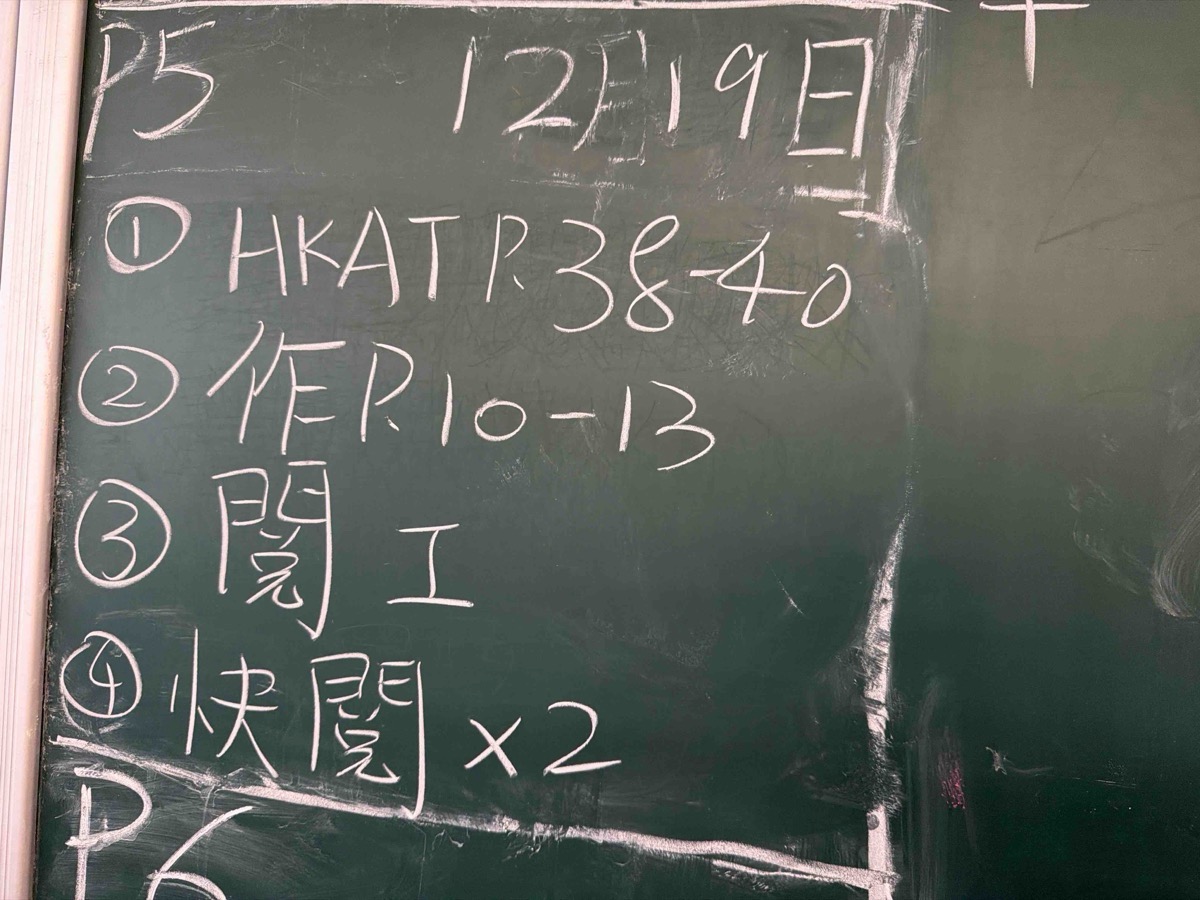 P5 12月19日
① HKAT P.38-40
② 作P.10-13
③ 閱 工
④ 快閱 x2
P6